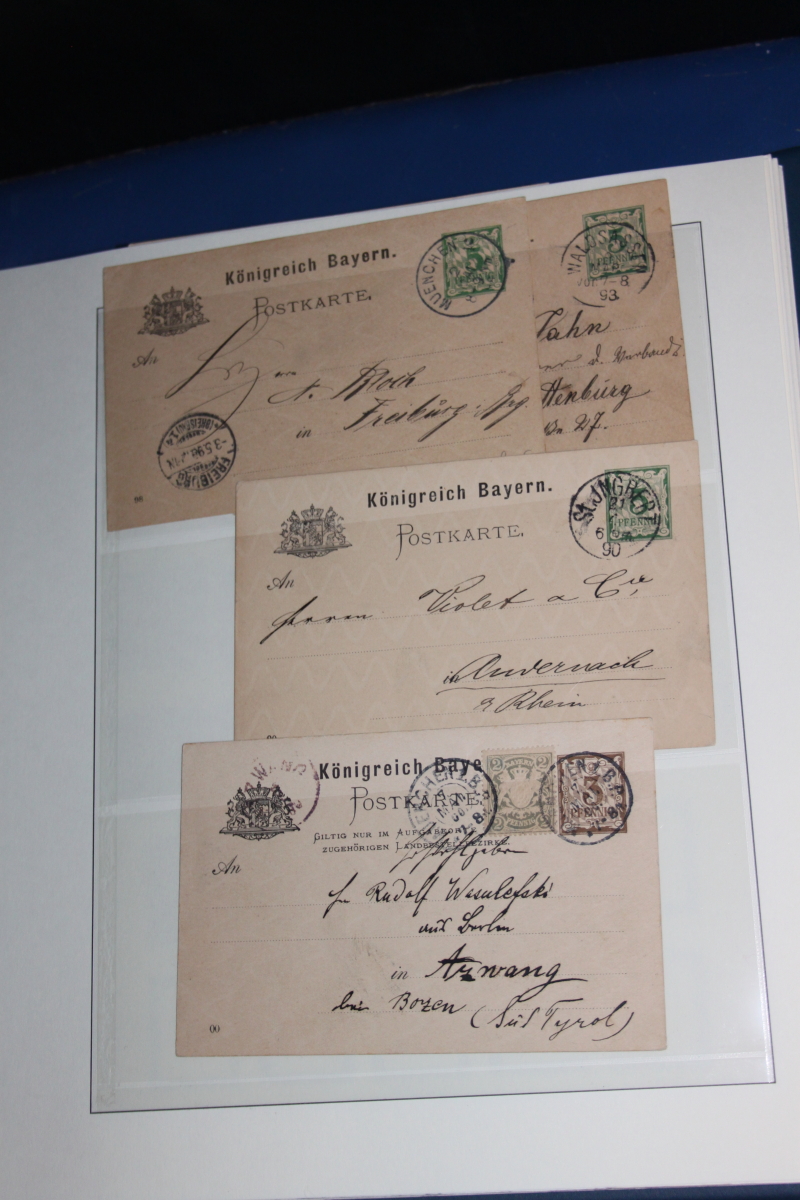 Königreich Bayern.
POSTKARTE.
MUENCHEN
5
An
Herrn
A. Bloch
in Freiburg
FREIBURG
-3.5.98
98
WALDSASSEN
5
PFENNIG
Vor. 7-8.
93
Jahn
d. Verbands
ttenburg
27.
Königreich Bayern.
POSTKARTE.
St. JNGBERT
21
6
90
5
PFENNIG
An
Herren Violet & Cie
in Andernach
a Rhein
Königreich Baye
POSTKARTE.
GILTIG NUR IM AUFGABEORT
ZUGEHÖRIGEN LANDBESTELLBEZIRKE.
2
2
3
PFENNIG
An
Rudolf Wasulefski
aus Berlin
in Atzwang
bei Bozen (Süd Tyrol)
00